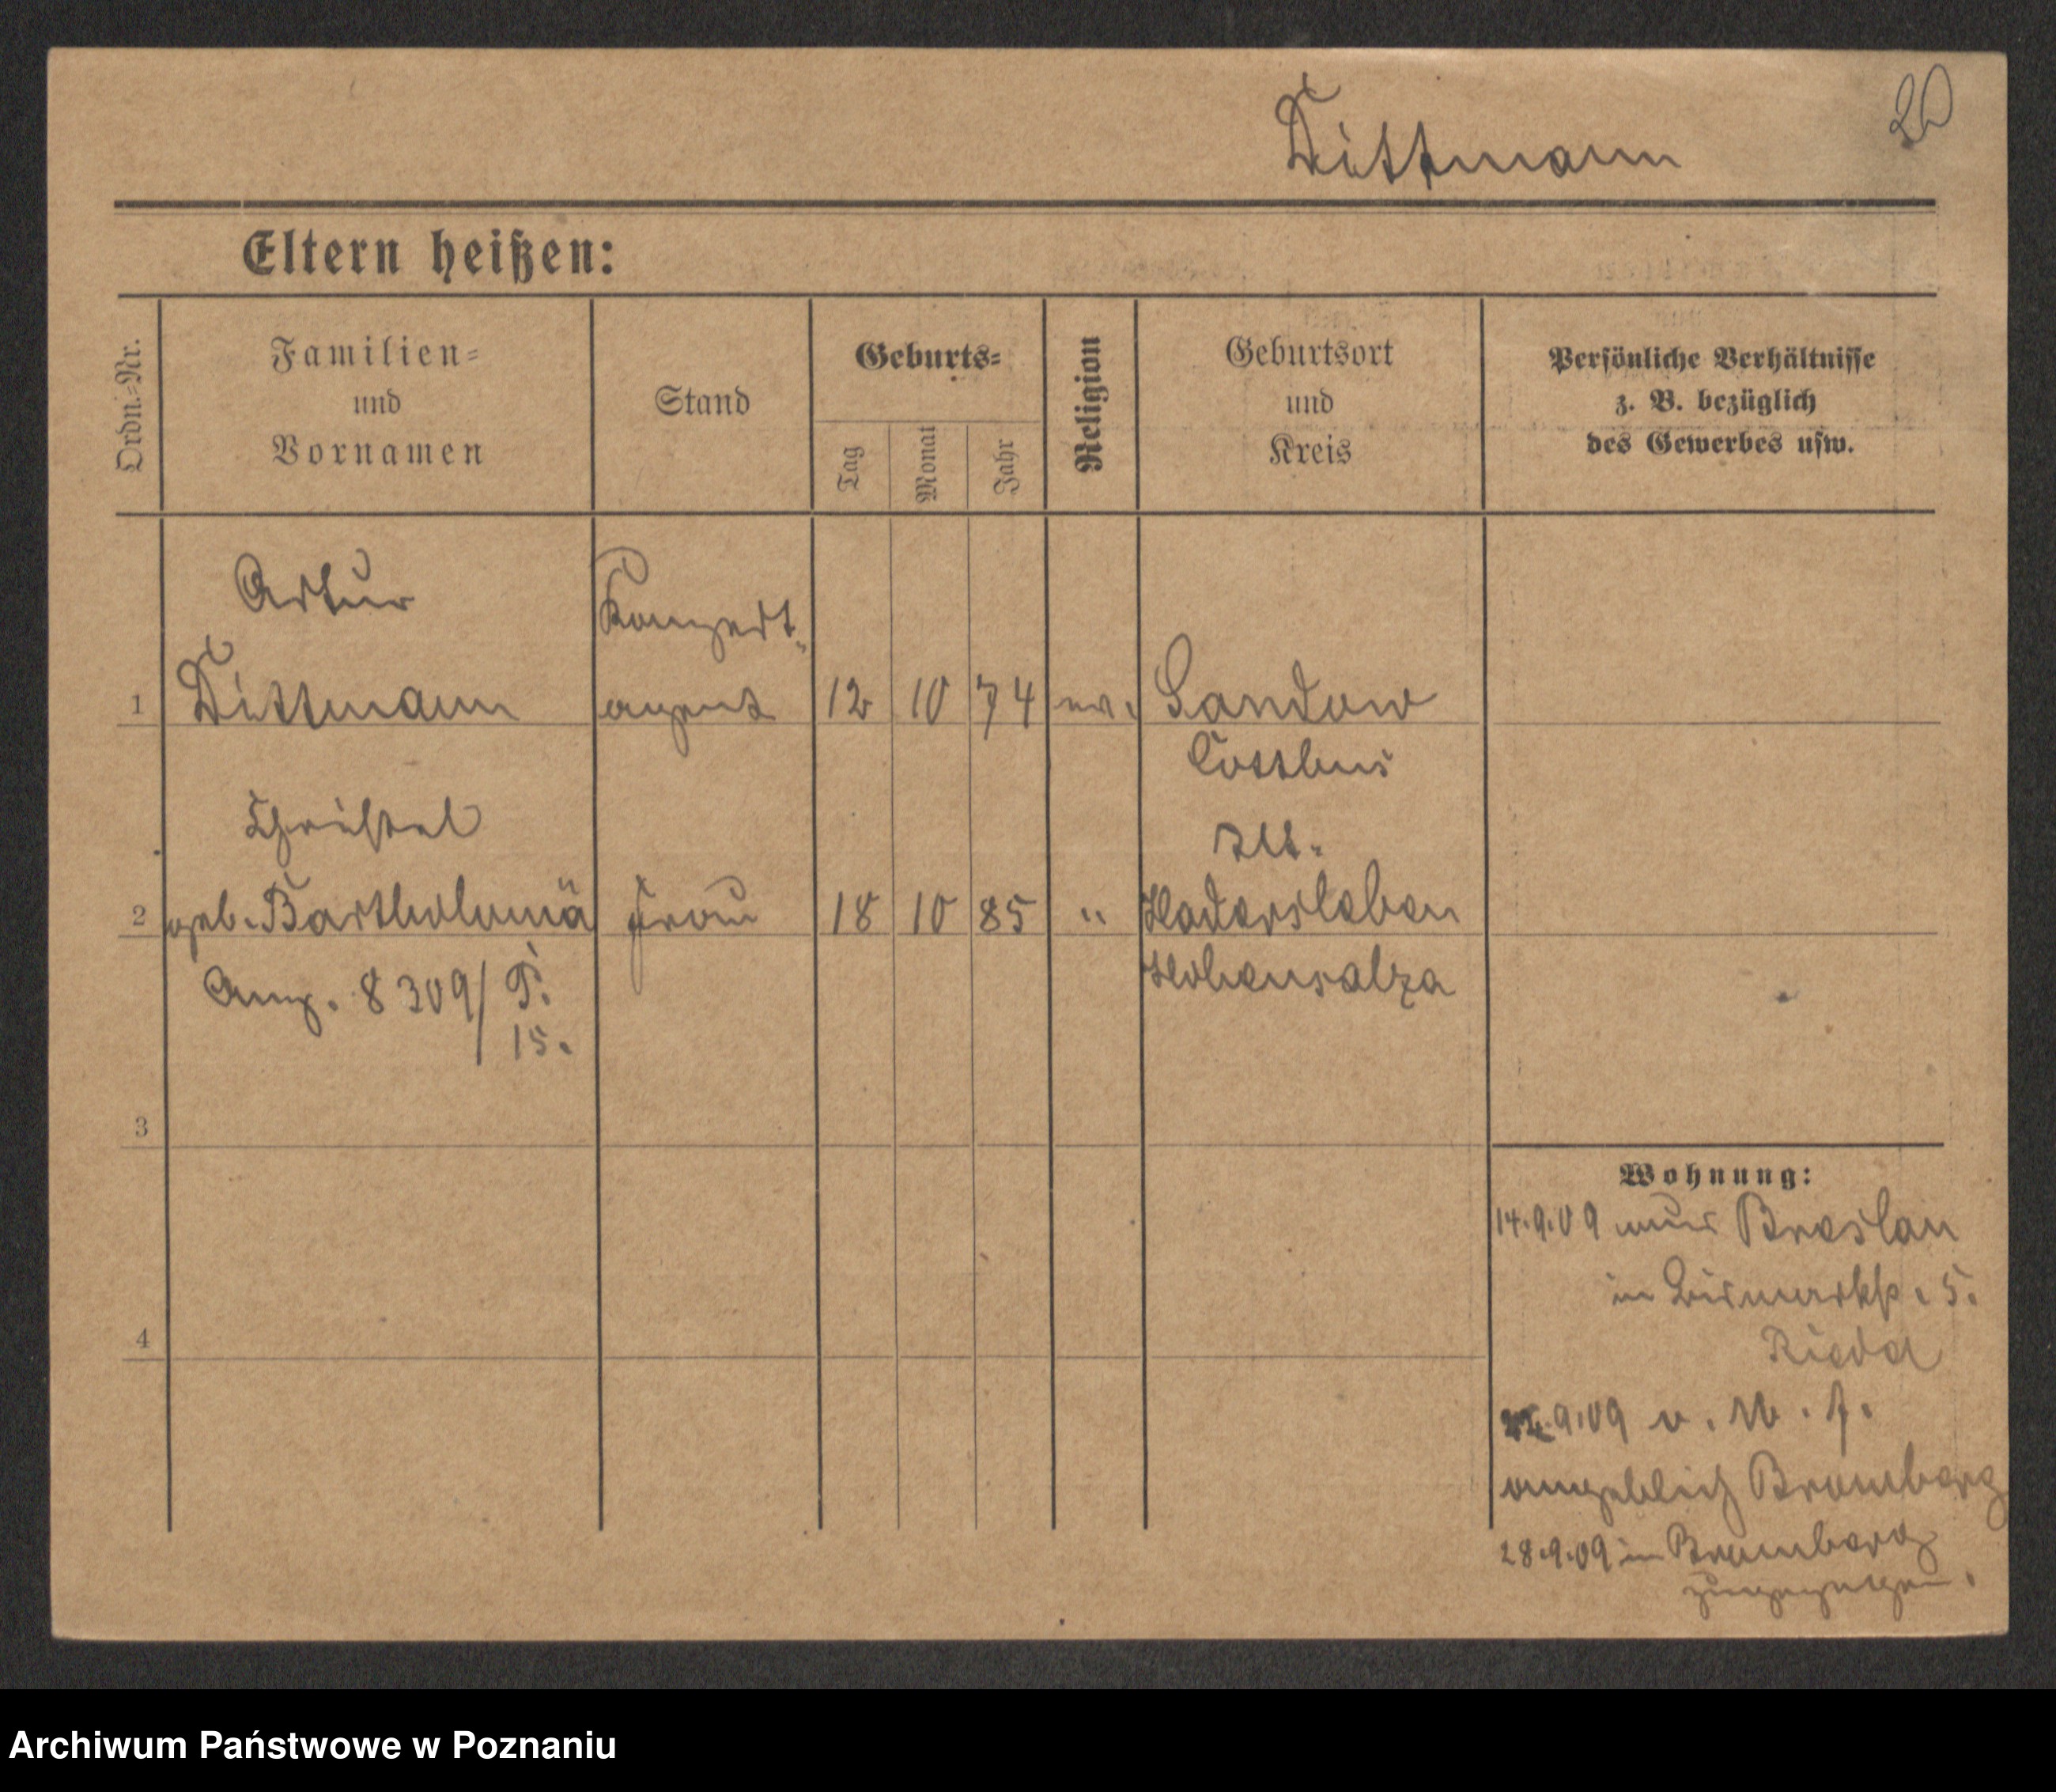 Dittmann
20
Eltern heißen:
Ordn.-Nr.
Familien-
und
Vornamen
Stand
Geburts-
Tag
Monat
Jahr
Religion
Geburtsort
und
Kreis
Persönliche Verhältnisse
z. B. bezüglich
des Gewerbes usw.
Artur
Konzert-
1 Dittmann agent 12 10 74 ev. Sandow
Cottbus
Christel
2 geb. Bartholomä Frau 18 10 85 " Hadersleben
Hohensalza
Ang. 8309/ P.
15.
3
4
Wohnung:
14.9.09 aus Breslau
in Bismarkstr. 5.
Riedel
9.09 v. M. f.
angeblich Bromberg
28.9.09 in Bromberg
zugezogen.
Archiwum Państwowe w Poznaniu